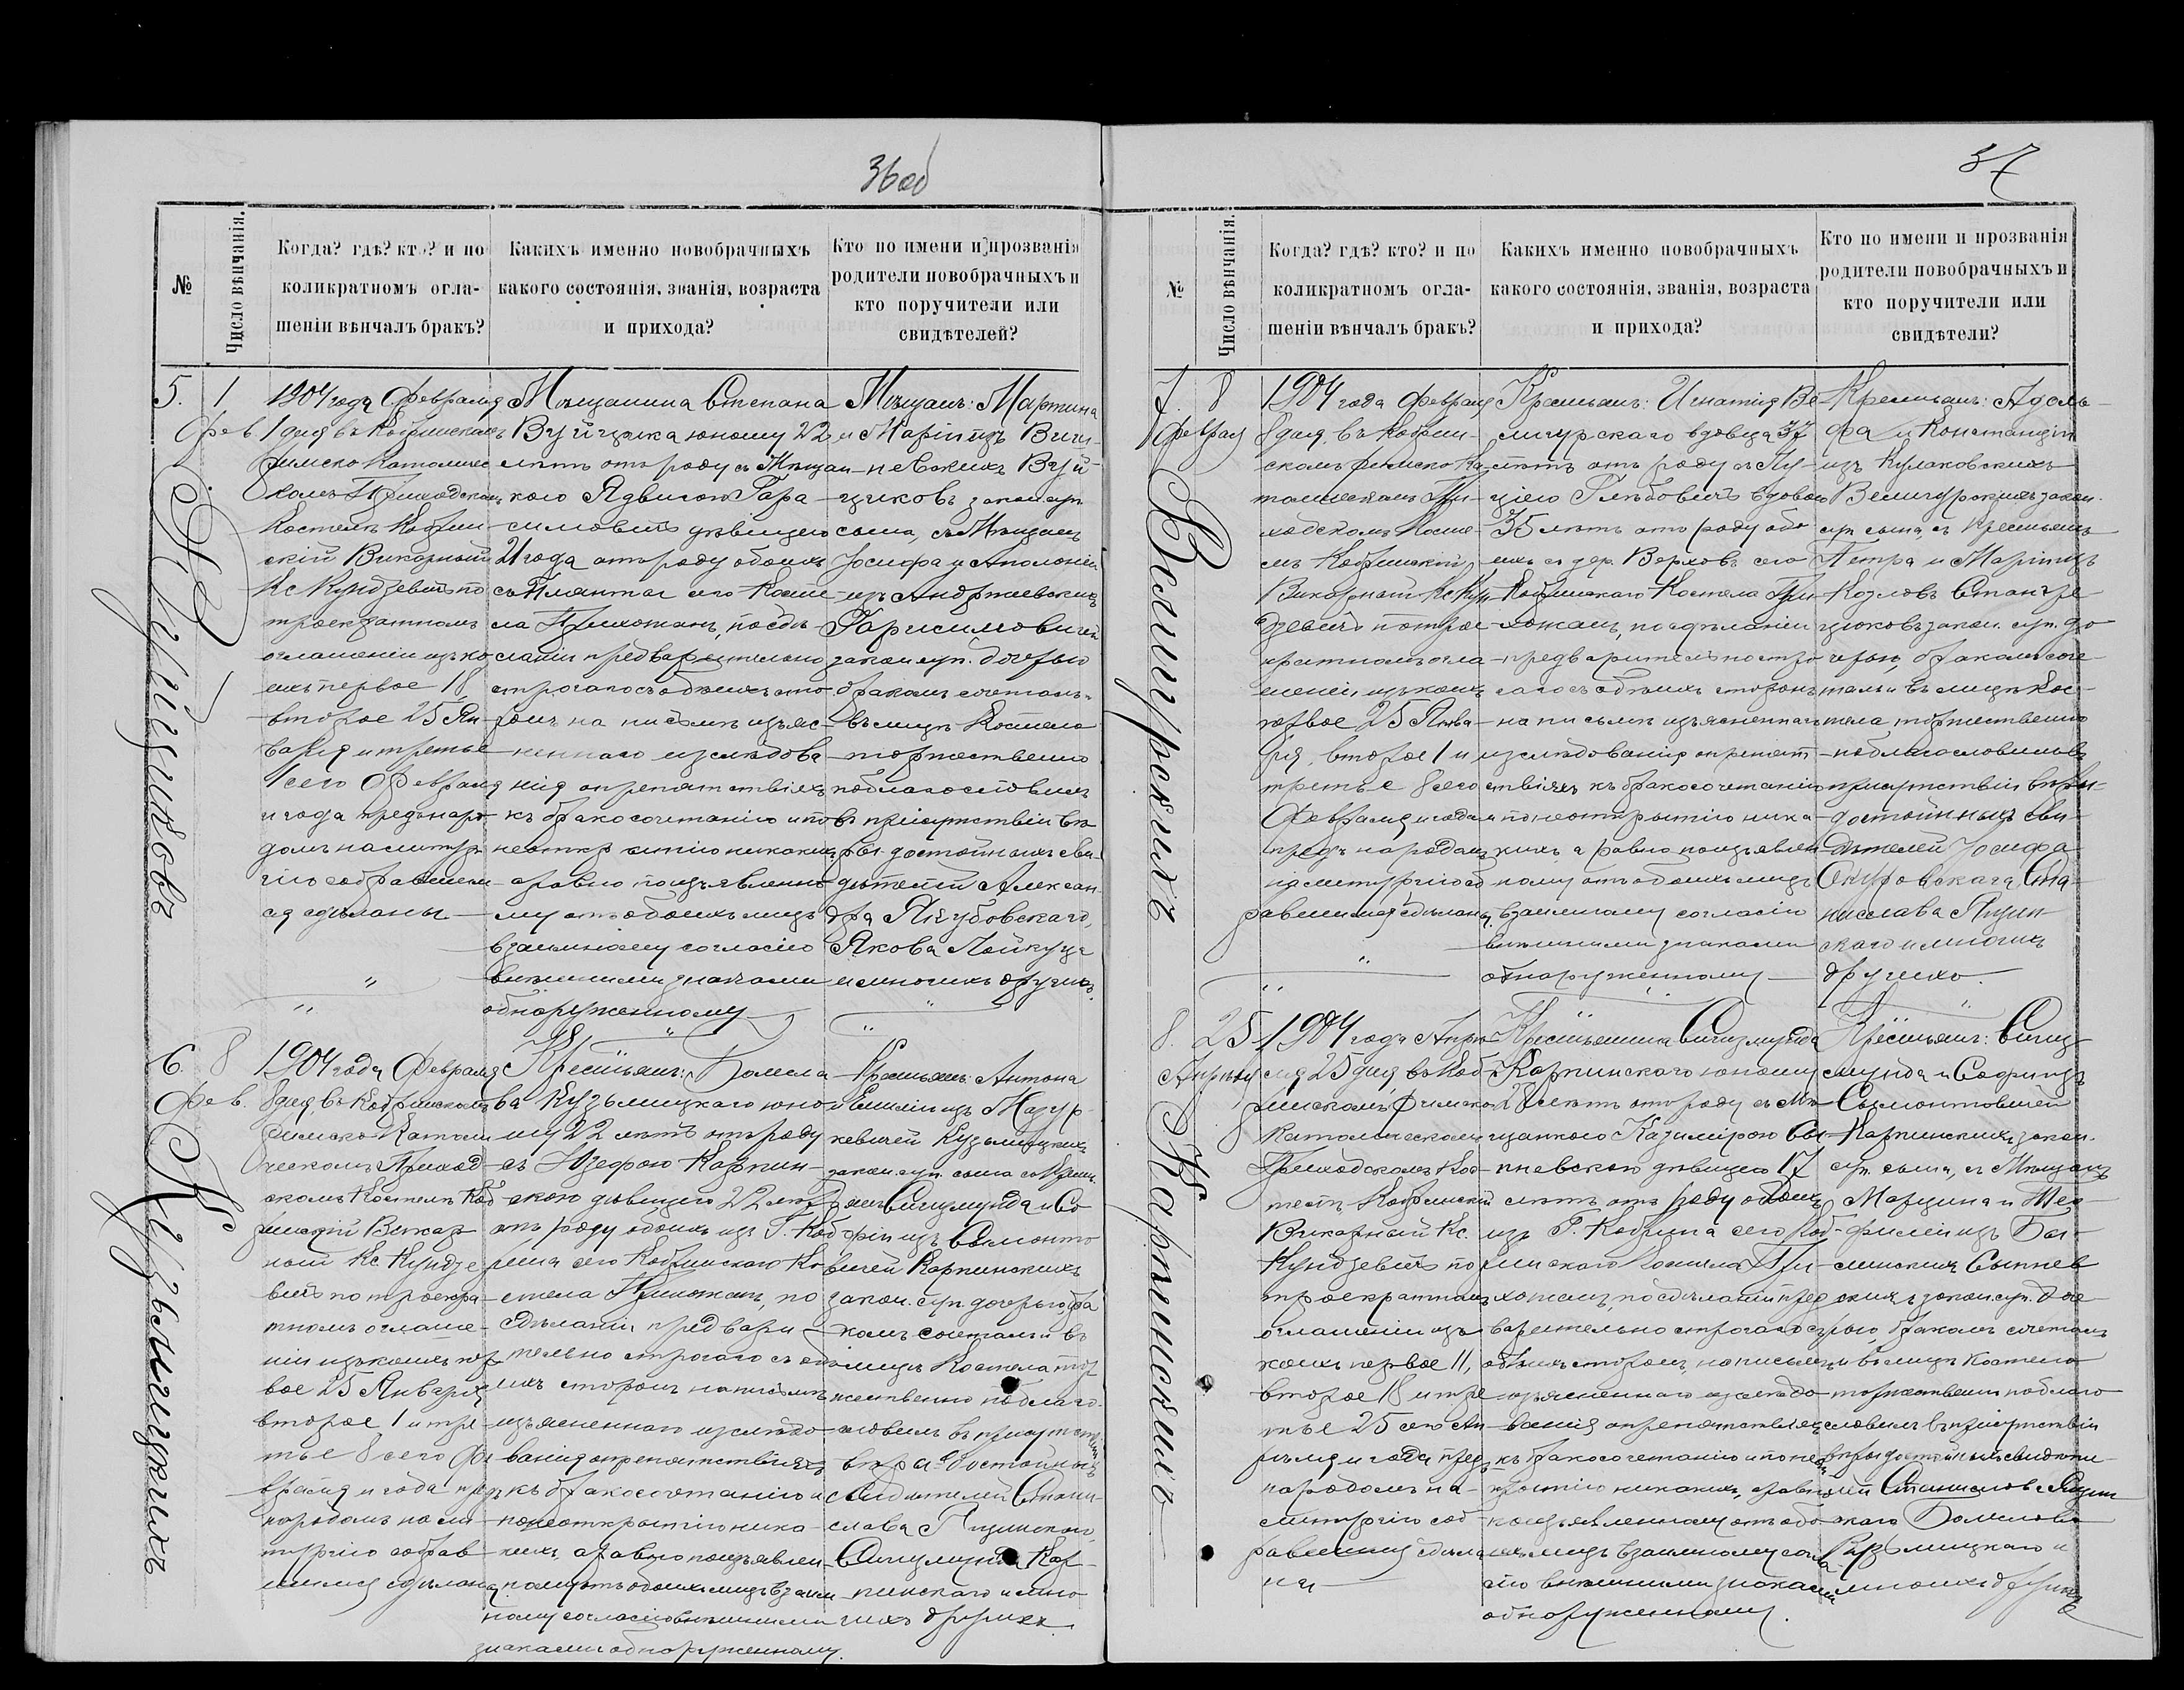 36об
№
Число вѣнчанія.
Когда? гдѣ? кто? и по
коликратномъ огла-
шеніи вѣнчалъ бракъ?
Какихъ именно новобрачныхъ
какого состоянія, званія, возраста
и прихода?
Кто по имени и прозванія
родители новобрачныхъ и
кто поручители или
свидѣтелей?
5.
1
Фев.
1904 года Февраля
1 дня въ Кобринскомъ
Римско Католичес
комъ Приходскомъ
Костелѣ Кобрин-
скій Викарный
Кс Кундзевичъ по
троекратномъ
оглашеніи изъ ко
ихъ первое 18,
второе 25 Ян-
варя и третье
1 сего Февраля
и года предъ наро-
домъ на литур-
гію собравшем-
ся сдѣланы
Мѣщанина Степана
Вуйцика юношу 22
лѣтъ отъ роду съ Мѣщан-
кою Ядвигою Гара-
симовичъ дѣвицею
21 года отъ роду обоихъ
съ Планта сего Косте-
ла Прихожанъ, по сдѣ-
ланіи предварительно
строгаго съ обѣихъ сто-
ронъ на письмѣ изъяс-
неннаго изслѣдова-
нія о препятствіяхъ
къ бракосочетанію и по
неоткрытію никакихъ,
а равно по изъявленно-
му отъ обоихъ лицъ
взаимному согласію
внѣшними знаками
обнаруженному
Мѣщанъ: Мартина
и Маріи изъ
Вуй-
циковъ закон. супр.
сына, съ Мѣщанъ
Іосифа и Аполоніи
изъ Андржеевскихъ
Гарасимовичей
закон. супр. дочерью
бракомъ сочеталъ и
въ лицѣ Костела
торжественно
поблагословилъ
въ присутствіи вѣ-
ры достойныхъ сви-
дѣтелей Алексан-
дра Якубовскаго,
Якова Лойкуца
и многихъ другихъ.
Вуйциковъ
6.
8
Фев.
1904 года Февраля
8 дня, въ Кобринскомъ
Римско Католи
ческомъ Приход
скомъ Костелѣ Коб
ринскій Викар-
ный Кс Кундзе
вичъ по троекра-
тномъ оглаше-
ніи изъ коихъ пер
вое 25 Января,
второе 1 и тре-
тье 8 сего Фе
враля и года предъ
народомъ на ли-
тургію собрав
шимся сдѣланы
Крестьян: Болесла
ва Кузьмицкаго юно
шу 22 лѣтъ отъ роду
съ Юзефою Карпин-
скою дѣвицею 22 лѣтъ
отъ роду обоихъ изъ Г. Коб
рина сего Кобринскаго Ко
стела Прихожанъ, по
сдѣланіи предвари-
тельно строгаго съ обѣ
ихъ сторонъ на письмѣ
изъясненнаго изслѣдо-
ванія о препятствіяхъ
къ бракосочетанію и
по неоткрытію ника-
кихъ, а равно по изъявлен-
ному отъ обоихъ лицъ взаим-
ному согласію внѣшними
знаками обнаруженному.
Крестьян: Антона
и Емиліи изъ Мазур-
кевичей Кузьмицкихъ
закон. супр. сына съ Крест.
Сигизмунда и Со
фіи изъ Сымонто
вичей Карпинскихъ
закон. супр. дочерью бра
комъ сочеталъ и въ
лицѣ Костела тор
жественно поблаго-
словилъ въ присутствіи
вѣры достойныхъ
свидѣтелей Стани-
слава
Сигизмунда Кар-
пинскаго и мно-
гихъ другихъ.
Кузьмицкихъ
37
№
Число вѣнчанія.
Когда? гдѣ? кто? и по
коликратномъ огла-
шеніи вѣнчалъ бракъ?
Какихъ именно новобрачныхъ
какого состоянія, званія, возраста
и прихода?
Кто по имени и прозванія
родители новобрачныхъ и
кто поручители или
свидѣтели?
7.
8
Февраля
1904 года Февраля
8 дня, въ Кобрин-
скомъ Римско Ка
толическомъ При-
ходскомъ Косте-
лѣ Кобринскій
Викарный Кс Кун-
дзевичъ по трое-
кратномъ огла-
шеніи, изъ коихъ
первое 25 Янва-
ря, второе 1 и
третье 8 сего
Февраля и года
предъ народомъ
на литургію соб
равшимся сдѣланы
Крестьян: Игнатія Ве
личурскаго вдовца 37
лѣтъ отъ роду съ Лу-
ціею Глѣбовичъ вдовою
35 лѣтъ отъ роду обо
ихъ съ дер. Верховъ сего
Кобринскаго Костела При
хожанъ, по сдѣланіи
предварительно стро
гаго съ обѣихъ сторонъ
на письмѣ изъясненнаго
изслѣдованія о препят-
ствіяхъ къ бракосочетанію
и по неоткрытію ника-
кихъ, а равно по изъявлен
ному отъ обоихъ лицъ
взаимному согласію
внѣшними знаками
обнаруженному
Крестьян: Адоль-
фа и Констанціи
изъ Кулаковскихъ
Величурскихъ закон.
супр. сына, съ Крестьянъ
Петра и Маріи изъ
Козловъ
закон. супр. до
черью, бракомъ соче-
талъ и въ лицѣ Кос-
тела, торжественно
поблагословилъ въ
присутствіи вѣры-
достойныхъ сви-
дѣтелей Іосифа
Ста-
нислава
скаго и многихъ
другихъ.
Величурскихъ
8.
25
Апрѣля
1904 года Апрѣ-
ля 25 дня въ Коб-
ринскомъ Римско
Католическомъ
Приходскомъ Кос-
телѣ Кобринскій
Викарный Кс.
Кундзевичъ по
троекратномъ
оглашеніи изъ
коихъ первое 11,
второе 18 и тре-
тье 25 сего Ап-
рѣля и года предъ
народомъ на
литургію соб-
равшимся сдѣла-
ны
Крестьянина Сигизмунда
Карпинскаго юношу
28 лѣтъ отъ роду съ Мѣ-
щанкою Казимірою Сы-
пневскою дѣвицею 17
лѣтъ отъ роду обоихъ
изъ Г. Кобрина сего Коб-
ринскаго Костела При-
хожанъ, по сдѣланіи пред
варительно строгаго съ
обѣихъ сторонъ, на письмѣ
изъясненнаго изслѣдо-
ванія о препятствіяхъ
къ бракосочетанію и по не
открытію никакихъ, а равно
по изъявленному отъ обо-
ихъ лицъ взаимному согла
сію внѣшними знаками
обнаруженному.
Крестьян: Сигиз-
мунда и Софіи изъ
Сымонтовичей
Карпинскихъ закон.
супр. сына, съ Мѣщанъ
Марцина и Тео-
филіи изъ
Сыпнев
скихъ закон. супр. доче-
рью, бракомъ сочеталъ
и въ лицѣ Костела
торжественно поблаго
словилъ въ присутствіи
вѣры достойныхъ свидѣте-
лей Станислава
скаго Болеслава
Кузьмицкаго и
многихъ другихъ
Карпинскихъ